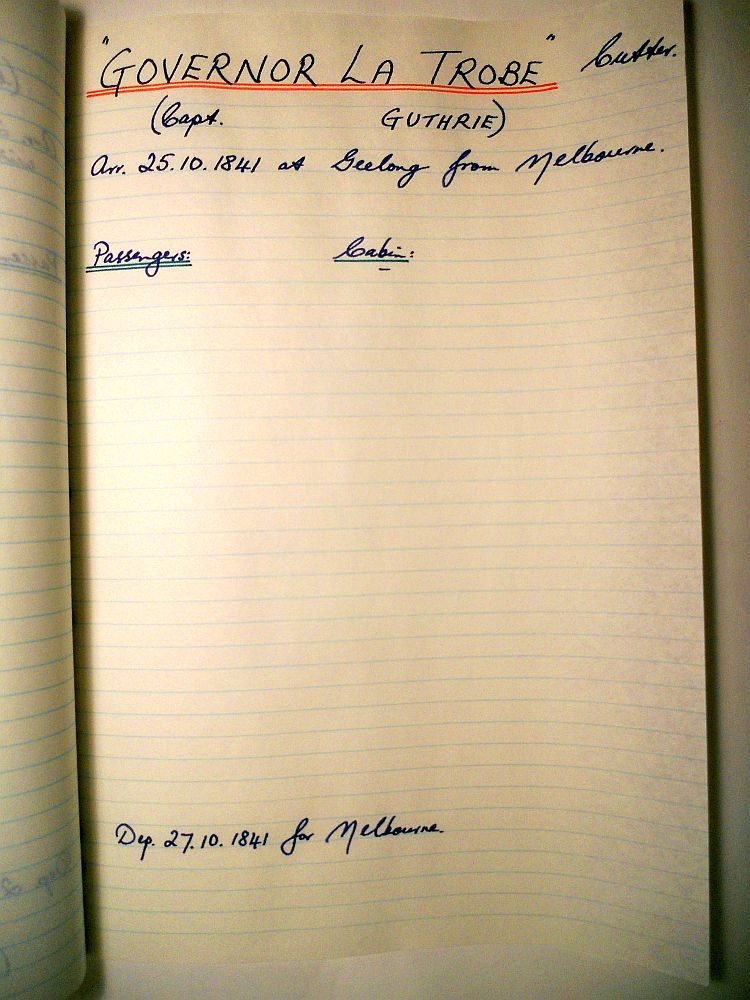 "GOVERNOR LA TROBE" Cutter.
(Capt. GUTHRIE)
Arr. 25.10.1841 at Geelong from Melbourne.
Passengers: Cabin:
Dep. 27.10.1841 for Melbourne.